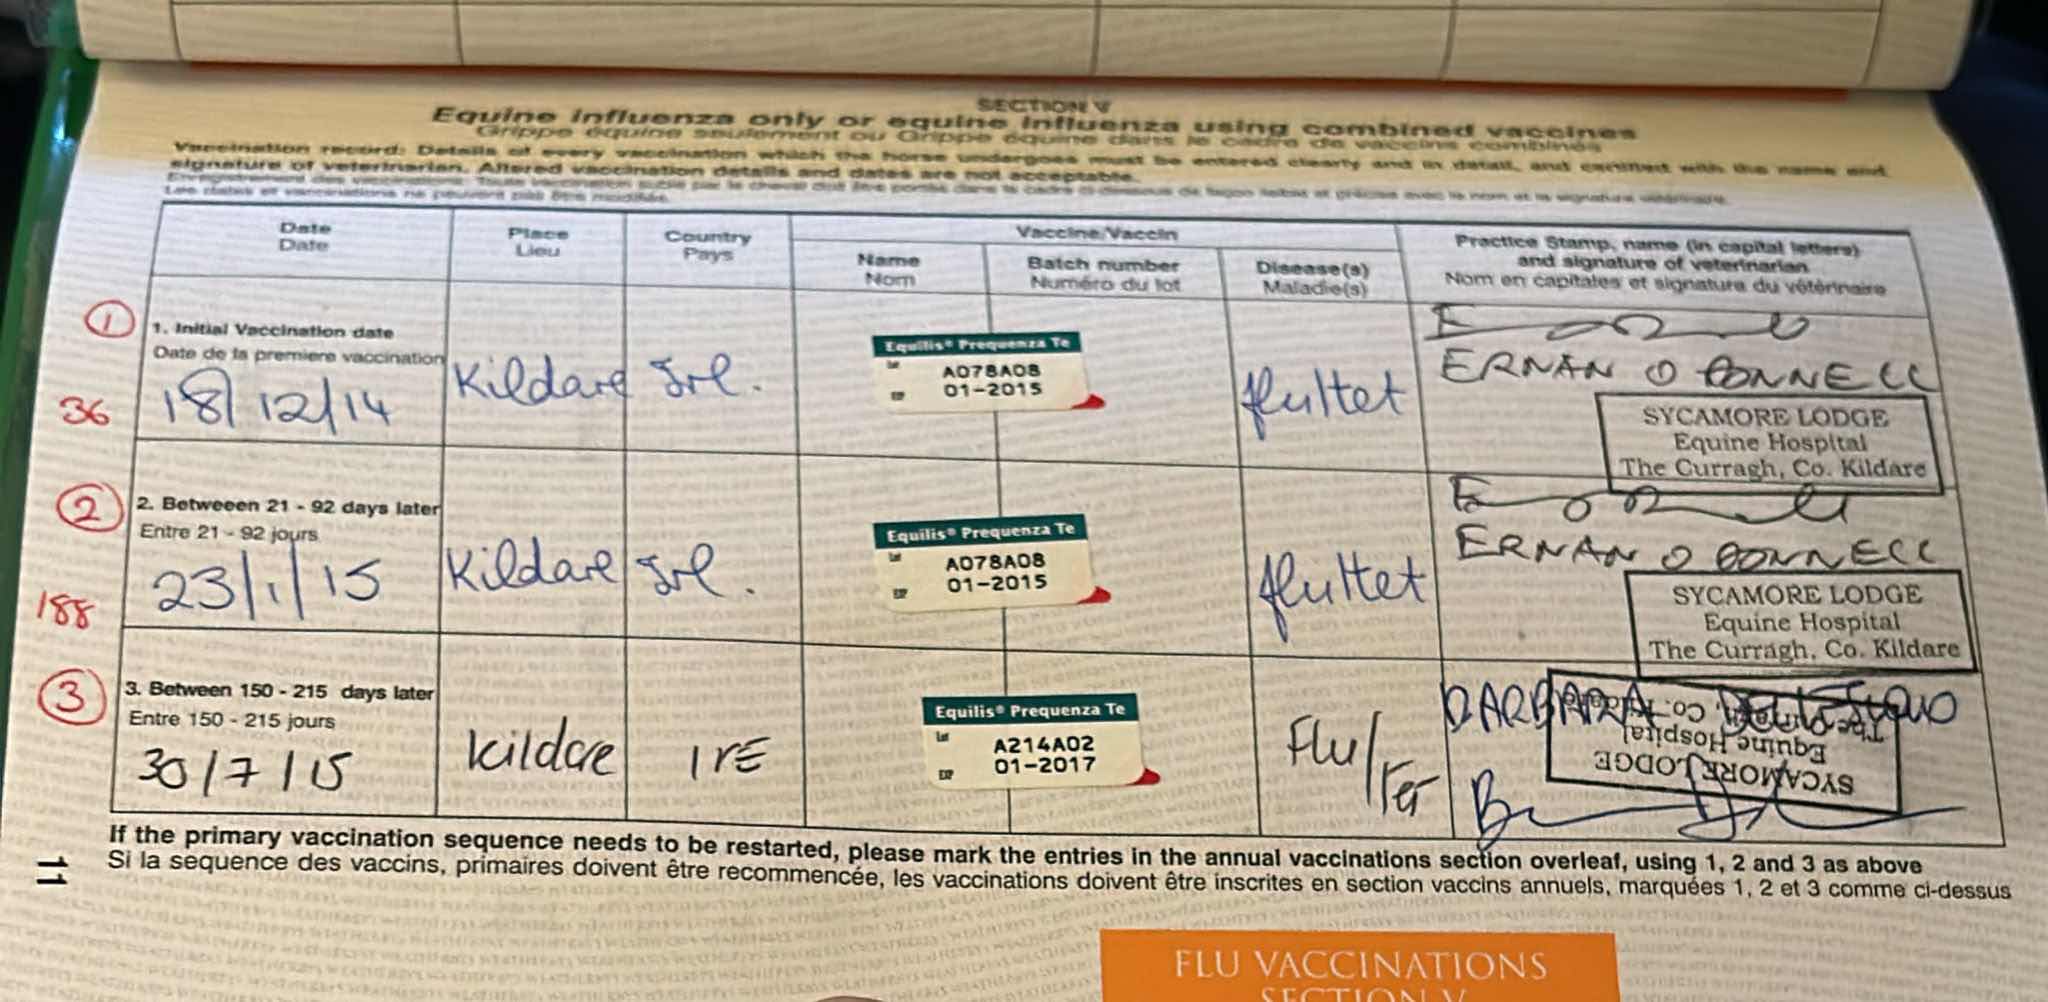 SECTION V
Equine influenza only or equine influenza using combined vaccines
Grippe équine seulement ou Grippe équine dans le cadre de vaccins combinés
Vaccination record: Details of every vaccination which the horse undergoes must be entered clearly and in detail, and certified with the name and
signature of veterinarian. Altered vaccination details and dates are not acceptable.
Les dates et vaccinations ne peuvent pas être modifiés.
Date
Date
Place
Lieu
Country
Pays
Vaccine/Vaccin
Name
Nom
Batch number
Numéro du lot
Disease(s)
Maladie(s)
Practice Stamp, name (in capital letters)
and signature of veterinarian
Nom en capitales et signature du vétérinaire
1
1. Initial Vaccination date
Date de la premiere vaccination
18/12/14
Kildare
Irl.
Equilis® Prequenza Te
Lot
A078A08
EXP
01-2015
flu/tet
ERNAN O CONNELL
SYCAMORE LODGE
Equine Hospital
The Curragh, Co. Kildare
36
2
2. Betweeen 21 - 92 days later
Entre 21 - 92 jours
23/1/15
Kildare
Irl.
Equilis® Prequenza Te
Lot
A078A08
EXP
01-2015
flu/tet
ERNAN O CONNELL
SYCAMORE LODGE
Equine Hospital
The Curragh, Co. Kildare
188
3
3. Between 150 - 215 days later
Entre 150 - 215 jours
30/7/15
Kildare
IrE
Equilis® Prequenza Te
Lot
A214A02
EXP
01-2017
Flu/Tet
BARBARA
SYCAMORE LODGE
Equine Hospital
The Curragh, Co. Kildare
If the primary vaccination sequence needs to be restarted, please mark the entries in the annual vaccinations section overleaf, using 1, 2 and 3 as above
Si la sequence des vaccins, primaires doivent être recommencée, les vaccinations doivent être inscrites en section vaccins annuels, marquées 1, 2 et 3 comme ci-dessus
11
FLU VACCINATIONS
SECTION V